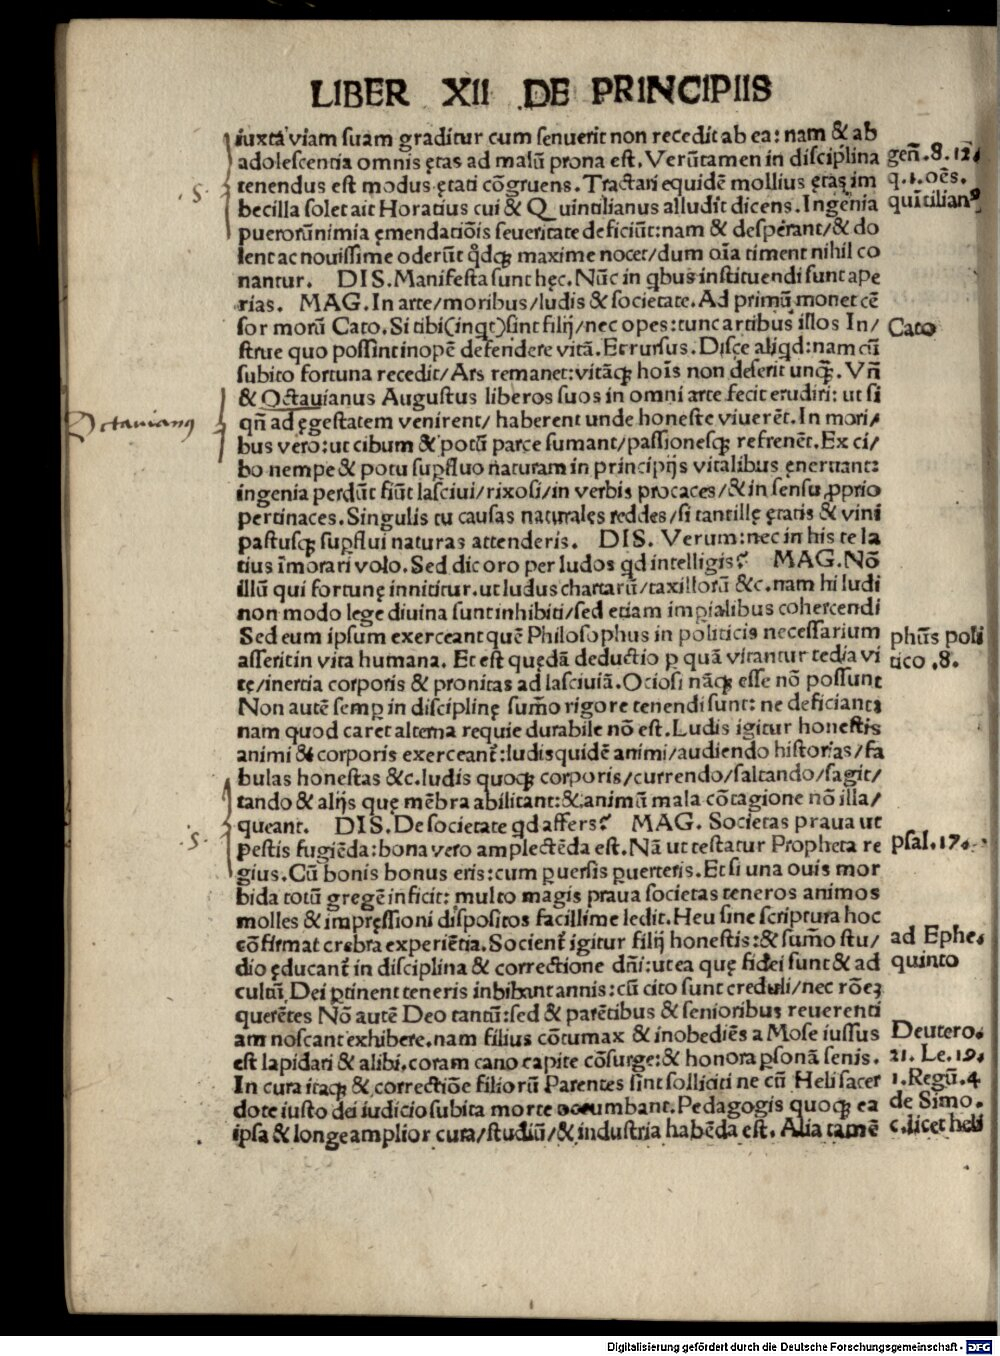 LIBER XII DE PRINCIPIIS
iuxta viam suam graditur cum senuerit non recedit ab ea: nam & ab
adolescentia omnis ętas ad malū prona est. Verūtamen in disciplina
tenendus est modus ętati cōgruens. Tractari equidē mollius ętas im
becilla solet ait Horatius cui & Quintilianus alludit dicens. Ingenia
puerorū nimia ęmendatiōis seueritate deficiūt: nam & desperant/& do
lent ac nouissime oderūt qđqꝫ maxime nocet/dum oīa timent nihil co
nantur. DIS. Manifesta sunt hęc. Nūc in qbus instituendi sunt ape
rias. MAG. In arte/moribus/ludis & societate. Ad primū monet cē
sor morū Cato. Si tibi(inqt)sint filij/nec opes: tunc artibus illos In/
strue quo possint inopē defendere vitā. Et rursus. Disce aliqd: nam cū
subito fortuna recedit/Ars remanet: vitāqꝫ hoīs non deserit unqꝫ. Vn̄
& Octauianus Augustus liberos suos in omni arte fecit erudiri: ut si
qn̄ ad ęgestatem venirent/ haberent unde honeste viuerēt. In mori/
bus vero: ut cibum & potū parce sumant/passionesqꝫ refrenēt. Ex ci/
bo nempe & potu suꝑfluo naturam in principijs vitalibus ęneruant:
ingenia perdūt fiūt lasciui/rixosi/in verbis procaces/& in sensu ꝓprio
pertinaces. Singulis tu causas naturales reddes/si tantillę ętatis & vini
pastusqꝫ suꝑflui naturas attenderis. DIS. Verum: nec in his te la
tius īmorari volo. Sed dic oro per ludos qd intelligis? MAG. Nō
illū qui fortunę innititur. ut ludus chartarū/taxillorū &c. nam hi ludi
non modo lege diuina sunt inhibiti/sed etiam imꝑialibus cohercendi
Sed eum ipsum exerceant quē Philosophus in politicis necessarium
asserit in vita humana. Et est quędā deductio ꝑ quā vitantur tedia vi
tę/inertia corporis & pronitas ad lasciuiā. Ociosi nāqꝫ esse nō possunt
Non autē semꝑ in disciplinę sum̄o rigore tenendi sunt: ne deficiant:
nam quod caret alterna requie durabile nō est. Ludis igitur honestis
animi & corporis exerceant̄: ludis quidē animi/audiendo historias/fa
bulas honestas &c. ludis quoqꝫ corporis/currendo/saltando/sagit/
tando & alijs quę mēbra abilitant: & animū mala cōtagione nō illa/
queant. DIS. De societate qd affers? MAG. Societas praua ut
pestis fugiēda: bona vero amplectēda est. Nā ut testatur Propheta re
gius. Cū bonis bonus eris: cum ꝑuersis ꝑuerteris. Et si una ouis mor
bida totū gregē inficit: multo magis praua societas teneros animos
molles & impręssioni dispositos facillime ledit. Heu sine scriptura hoc
cōfirmat crebra experiētia. Socient̄ igitur filij honestis: & sum̄o stu/
dio ęducant̄ in disciplina & correctione dn̄i: ut ea quę fidei sunt & ad
cultū Dei ꝑtinent teneris inbibant annis: cū cito sunt creduli/nec rōeꝫ
querētes Nō autē Deo tantū: sed & parētibus & senioribus reuerenti
am noscant exhibere. nam filius cōtumax & inobediēs a Mose iussus
est lapidari & alibi. coram cano capite cōsurge: & honora ꝑsonā senis.
In cura itaqꝫ & correctiōe filiorū Parentes sint solliciti ne cū Heli sacer
dote iusto dei iudicio subita morte occumbant. Pedagogis quoqꝫ ea
ipsa & longe amplior cura/studiū/& industria habēda est. Alia tamē
gen̄. 8. 12.
q. 1. oēs.
quītilianꝰ
Cato
ph̄us poli
tico .8.
psal. 17.
ad Ephe.
quinto
Deutero.
21. Le. 19.
1. Regū. 4
de Simo.
c. licet heli
.s.
Octauianus
.s.
Digitalisierung gefördert durch die Deutsche Forschungsgemeinschaft - DFG